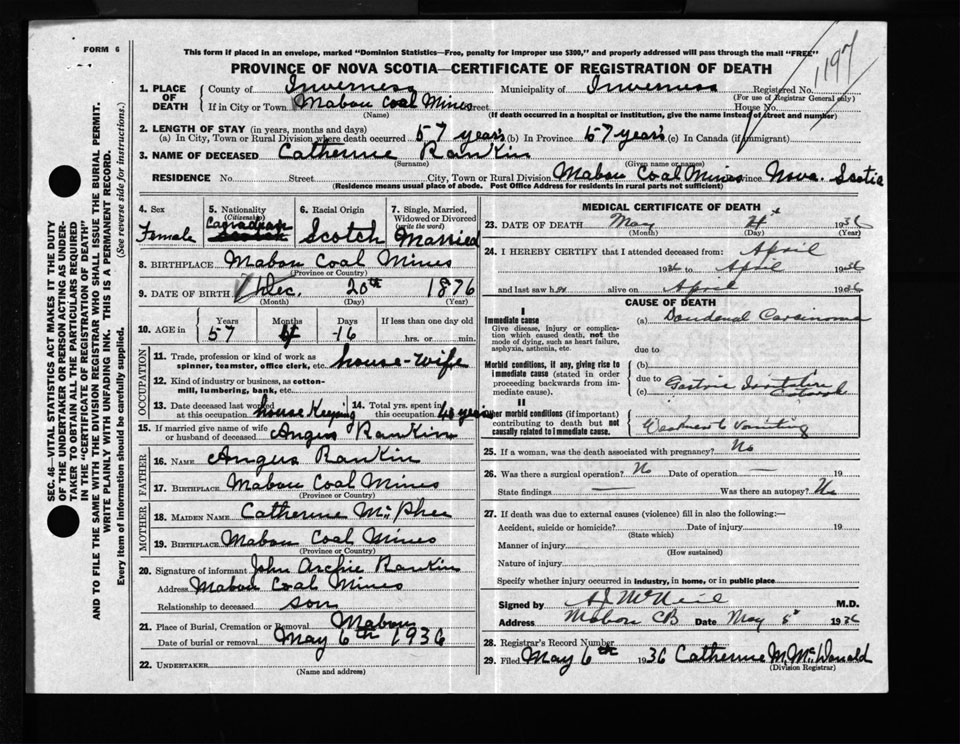 FORM 6
This form if placed in an envelope, marked "Dominion Statistics—Free, penalty for improper use $300," and properly addressed will pass through the mail "FREE"
1197
PROVINCE OF NOVA SCOTIA—CERTIFICATE OF REGISTRATION OF DEATH
1. PLACE OF DEATH { County of Inverness Municipality of Inverness Registered No.
(For use of Registrar General only)
If in City or Town Mabou Coal Mines Street House No.
(Name) (If death occurred in a hospital or institution, give the name instead of street and number)
2. LENGTH OF STAY (in years, months and days)
(a) In City, Town or Rural Division where death occurred 57 years (b) In Province 57 years (c) In Canada (if immigrant)
3. NAME OF DECEASED Catherine Rankin
(Surname) (Given name or names)
RESIDENCE No. Street City, Town or Rural Division Mabou Coal Mines Province Nova Scotia
(Residence means usual place of abode. Post Office Address for residents in rural parts not sufficient)
4. Sex Female
5. Nationality (Citizenship) Canadian Scotch
6. Racial Origin Scotch
7. Single, Married, Widowed or Divorced (write the word) Married
8. BIRTHPLACE Mabou Coal Mines
(Province or Country)
9. DATE OF BIRTH Dec. 20th 1876
(Month) (Day) (Year)
10. AGE in Years 57 Months 4 Days 16 If less than one day old
hrs. or min.
OCCUPATION
11. Trade, profession or kind of work as spinner, teamster, office clerk, etc. house-wife
12. Kind of industry or business, as cotton-mill, lumbering, bank, etc.
13. Date deceased last worked at this occupation house Keeping 14. Total yrs. spent in this occupation 40 years
15. If married give name of wife or husband of deceased Angus Rankin
FATHER
16. NAME Angus Rankin
17. BIRTHPLACE Mabou Coal Mines
(Province or Country)
MOTHER
18. MAIDEN NAME Catherine McPhee
19. BIRTHPLACE Mabou Coal Mines
(Province or Country)
20. Signature of informant John Archie Rankin
Address Mabou Coal Mines
Relationship to deceased son
21. Place of Burial, Cremation or Removal Mabou
Date of burial or removal May 6th 1936
22. UNDERTAKER
(Name and address)
MEDICAL CERTIFICATE OF DEATH
23. DATE OF DEATH May 4th 1936
(Month) (Day) (Year)
24. I HEREBY CERTIFY that I attended deceased from: April
1936 to April 1936
and last saw her alive on April 1936
CAUSE OF DEATH
I
Immediate cause
Give disease, injury, or complication which caused death, not the mode of dying, such as heart failure, asphyxia, asthenia, etc.
(a) Doudenal Carcinoma
due to
Morbid conditions, if any, giving rise to immediate cause (stated in order proceeding backwards from immediate cause).
(b)
due to
(c) Gastric
II
Other morbid conditions (if important) contributing to death but not causally related to immediate cause.
Weakness & Vomiting
25. If a woman, was the death associated with pregnancy? No
26. Was there a surgical operation? No Date of operation — 19
State findings — Was there an autopsy? No
27. If death was due to external causes (violence) fill in also the following:—
Accident, suicide or homicide? Date of injury 19
(State which)
Manner of injury
(How sustained)
Nature of injury
Specify whether injury occurred in industry, in home, or in public place
Signed by A J McNeil M.D.
Address Mabou CB Date May 5 1936
28. Registrar's Record Number
29. Filed May 6th 1936 Catherine M. McDonald
(Division Registrar)
SEC. 46—VITAL STATISTICS ACT MAKES IT THE DUTY
OF THE UNDERTAKER OR PERSON ACTING AS UNDER-
TAKER TO OBTAIN ALL THE PARTICULARS REQUIRED
IN THE "CERTIFICATE OF REGISTRATION OF DEATH"
AND TO FILE THE SAME WITH THE DIVISION REGISTRAR WHO SHALL ISSUE THE BURIAL PERMIT.
WRITE PLAINLY WITH UNFADING INK. THIS IS A PERMANENT RECORD.
Every item of information should be carefully supplied. (See reverse side for instructions.)